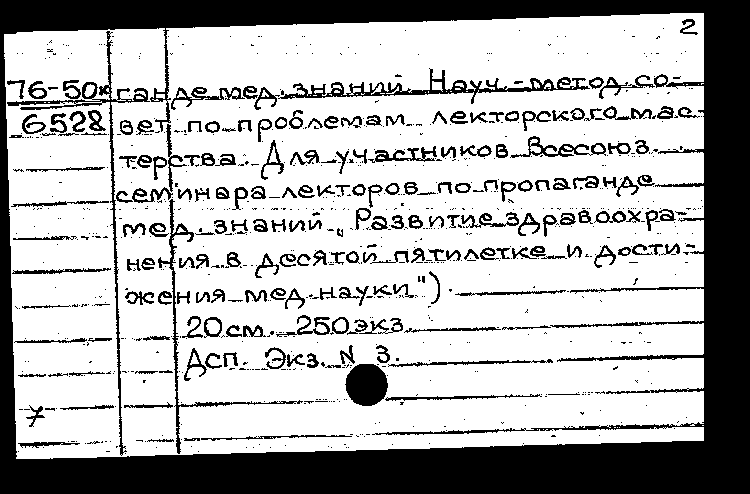 2
76-50к ганде мед. знаний. Науч.-метод. со-
6528 вет по проблемам лекторского мас-
терства. Для участников Всесоюз.
семинара лекторов по пропаганде
мед. знаний „Развитие здравоохра-
нения в десятой пятилетке и дости-
жения мед. науки").
20 см. 250 экз.
Дсп. Экз. N 3.
7